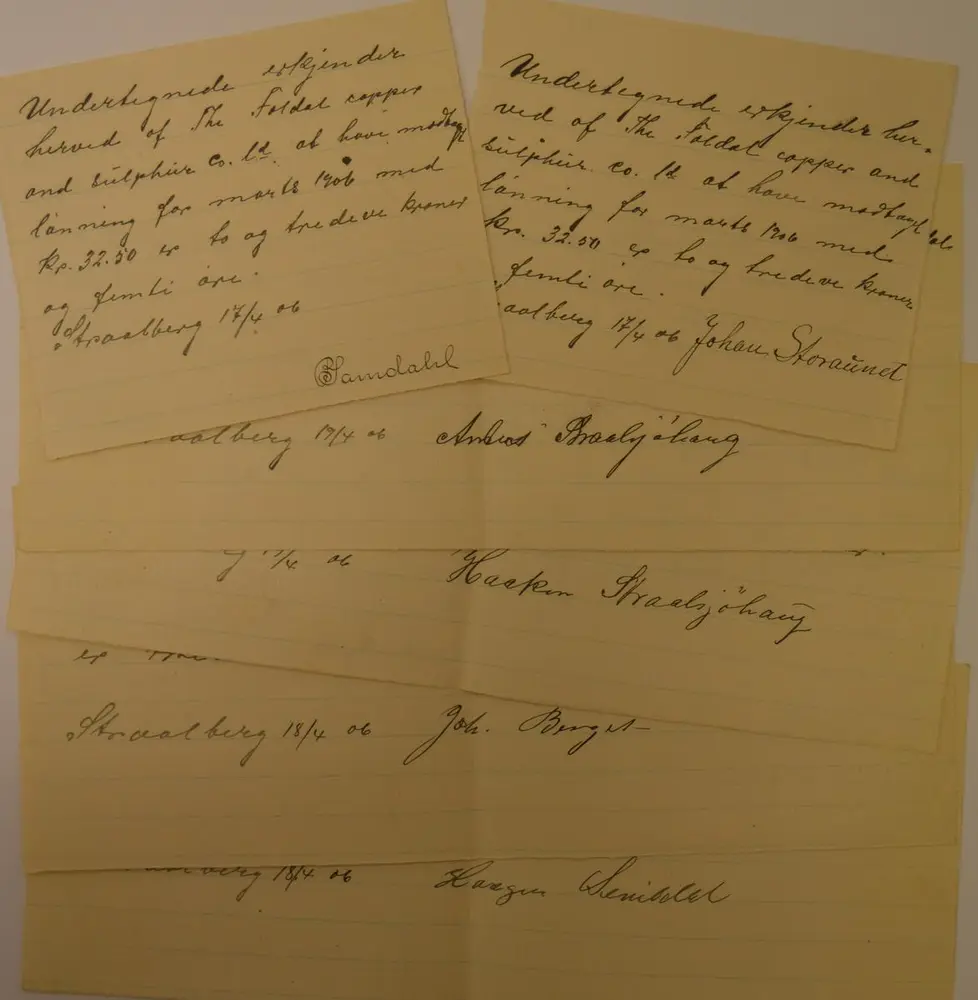 Undertegnede erkjender
herved of The Foldal copper
and sülphür co. Ld. at have modtagt
lønning for marts 1906 med
kr. 32.50 er to og tredeve kroner
og femti øre.
Straalberg 17/4 06
Samdahl
Undertegnede erkjender her-
ved of The Foldal copper and
sülphür. co. Ld at have modtagt
lønning for marts 1906 med
kr. 32.50 er to og tredeve kroner
femti øre.
aalberg 17/4 06 Johan Storaünet
aalberg 19/4 06 Straalsjöhaug
g 17/4 06 Haaken Straalsjöhaüg
er
Straalberg 18/4 06 Joh. Berget
berg 18/4 06